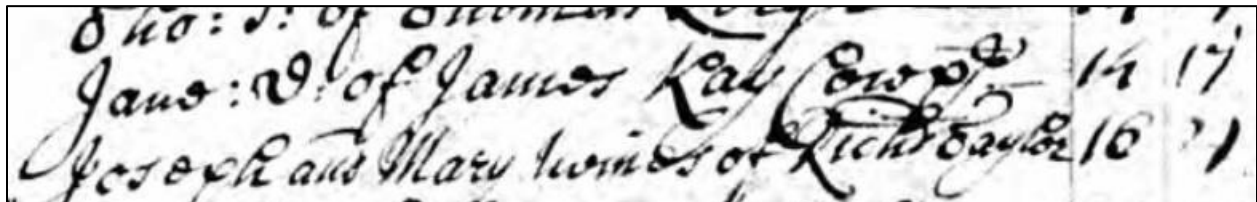 Tho: S: of Thomas
Jane: D: of James Kay Cowpr 14 17
Joseph and Mary twines of Richd Taylor 16 21